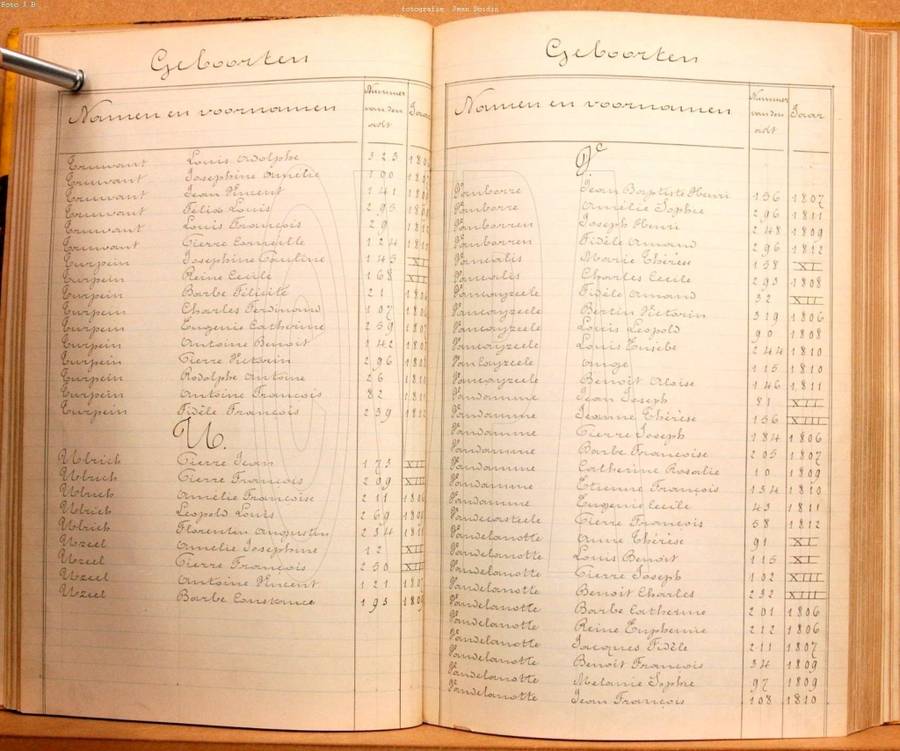 Foto J.B.
fotografie Jean Doidin
Geboorten
Namen en voornamen Nummer van den adt Jaar
Truwant Louis Adolphe 323
Truwant Josephine Amélie 190
Truwant Jean Vincent 141
Truwant Félix Louis 295
Truwant Louis François 29
Truwant Pierre Corneille 124
Turpein Josephine Pauline 145 XI
Turpein Reine Cecile 168 XII
Turpein Barbe Félicité 21
Turpein Charles Ferdinand 107
Turpein Eugenie Catherine 259
Turpein Antoine Benoit 142
Turpein Pierre Victorin 296
Turpein Rodolphe Antoine 26
Turpein Antoine François 82
Turpein Fidèle François 239
U.
Ulrich Pierre Jean 173 XII
Ulrich Pierre François 209 XII
Ulrich Amélie Françoise 211
Ulrich Leopold Louis 269
Ulrich Florentin Augustin 234
Uzeel Amelie Josephine 12 XII
Uzeel Pierre François 250 XII
Uzeel Antoine Vincent 121
Uzeel Barbe Constance 193
Geboorten
Namen en voornamen Nummer van den adt Jaar
Vanborre Jean Baptiste Henri 156 1807
Vanborre Amélie Sophie 296 1811
Vanborren Joseph Henri 248 1809
Vanborren Fidèle Armand 296 1812
Vancalis Marie Thérèse 158 XI
Vancalis Charles Cecile 293 1808
Vancayzeele Fidèle Armand 32 XII
Vancayzeele Bertin Victorin 319 1806
Vancayzeele Louis Leopold 90 1808
Vancayzeele Louis Eusebe 244 1810
Vancayzeele Ange 115 1810
Vancayzeele Benoit Aloise 146 1811
Vandamme Jean Joseph 81 XII
Vandamme Jeanne Thérèse 156 XIII
Vandamme Pierre Joseph 184 1806
Vandamme Barbe Françoise 205 1807
Vandamme Catherine Rosalie 10 1809
Vandamme Etienne François 134 1810
Vandamme Eugenie Cecile 43 1811
Vandecasteele Pierre François 58 1812
Vandelanotte Anne Thérèse 91 XI
Vandelanotte Louis Benoit 115 XI
Vandelanotte Pierre Joseph 102 XIII
Vandelanotte Benoit Charles 232 XIII
Vandelanotte Barbe Catherine 201 1806
Vandelanotte Reine Euphemie 212 1806
Vandelanotte Jacques Fidèle 211 1807
Vandelanotte Benoit François 34 1809
Vandelanotte Melanie Sophie 97 1809
Vandelanotte Jean François 108 1810